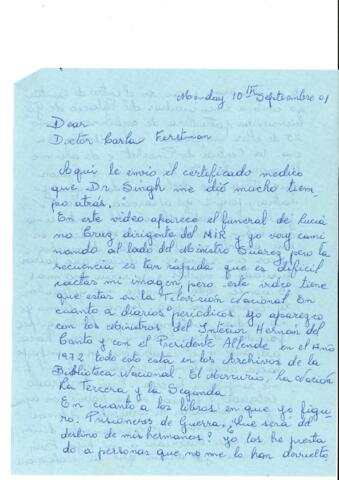 Monday 10th Septiembre 01
Dear
Doctor Carla Ferstman
Aquí le envio el certificado medico
que Dr. Singh me dió mucho tiem
po atrás.
En este video aparece el funeral de Lucia
no Cruz dirigente del MIR y yo voy cami
nando al lado del Ministro Suárez pero la
secuencia es tan rápida que es dificil
captar mi imagen, pero este video tiene
que estar en la Televisión Nacional. En
cuanto a diarios periodicos yo aparezco
con los Ministros del Interior Hernán del
Canto y con el Presidente Allende en el Año
1972 todo esto está en los Archivos de la
Biblioteca Nacional. El Mercurio, La Nación
La Tercera y la Segunda
En cuanto a los libros en que yo figu
ro. Prisioneros de Guerra, Que será del
destino de mis hermanos? yo los he presta
do a personas que no me lo han devuelto